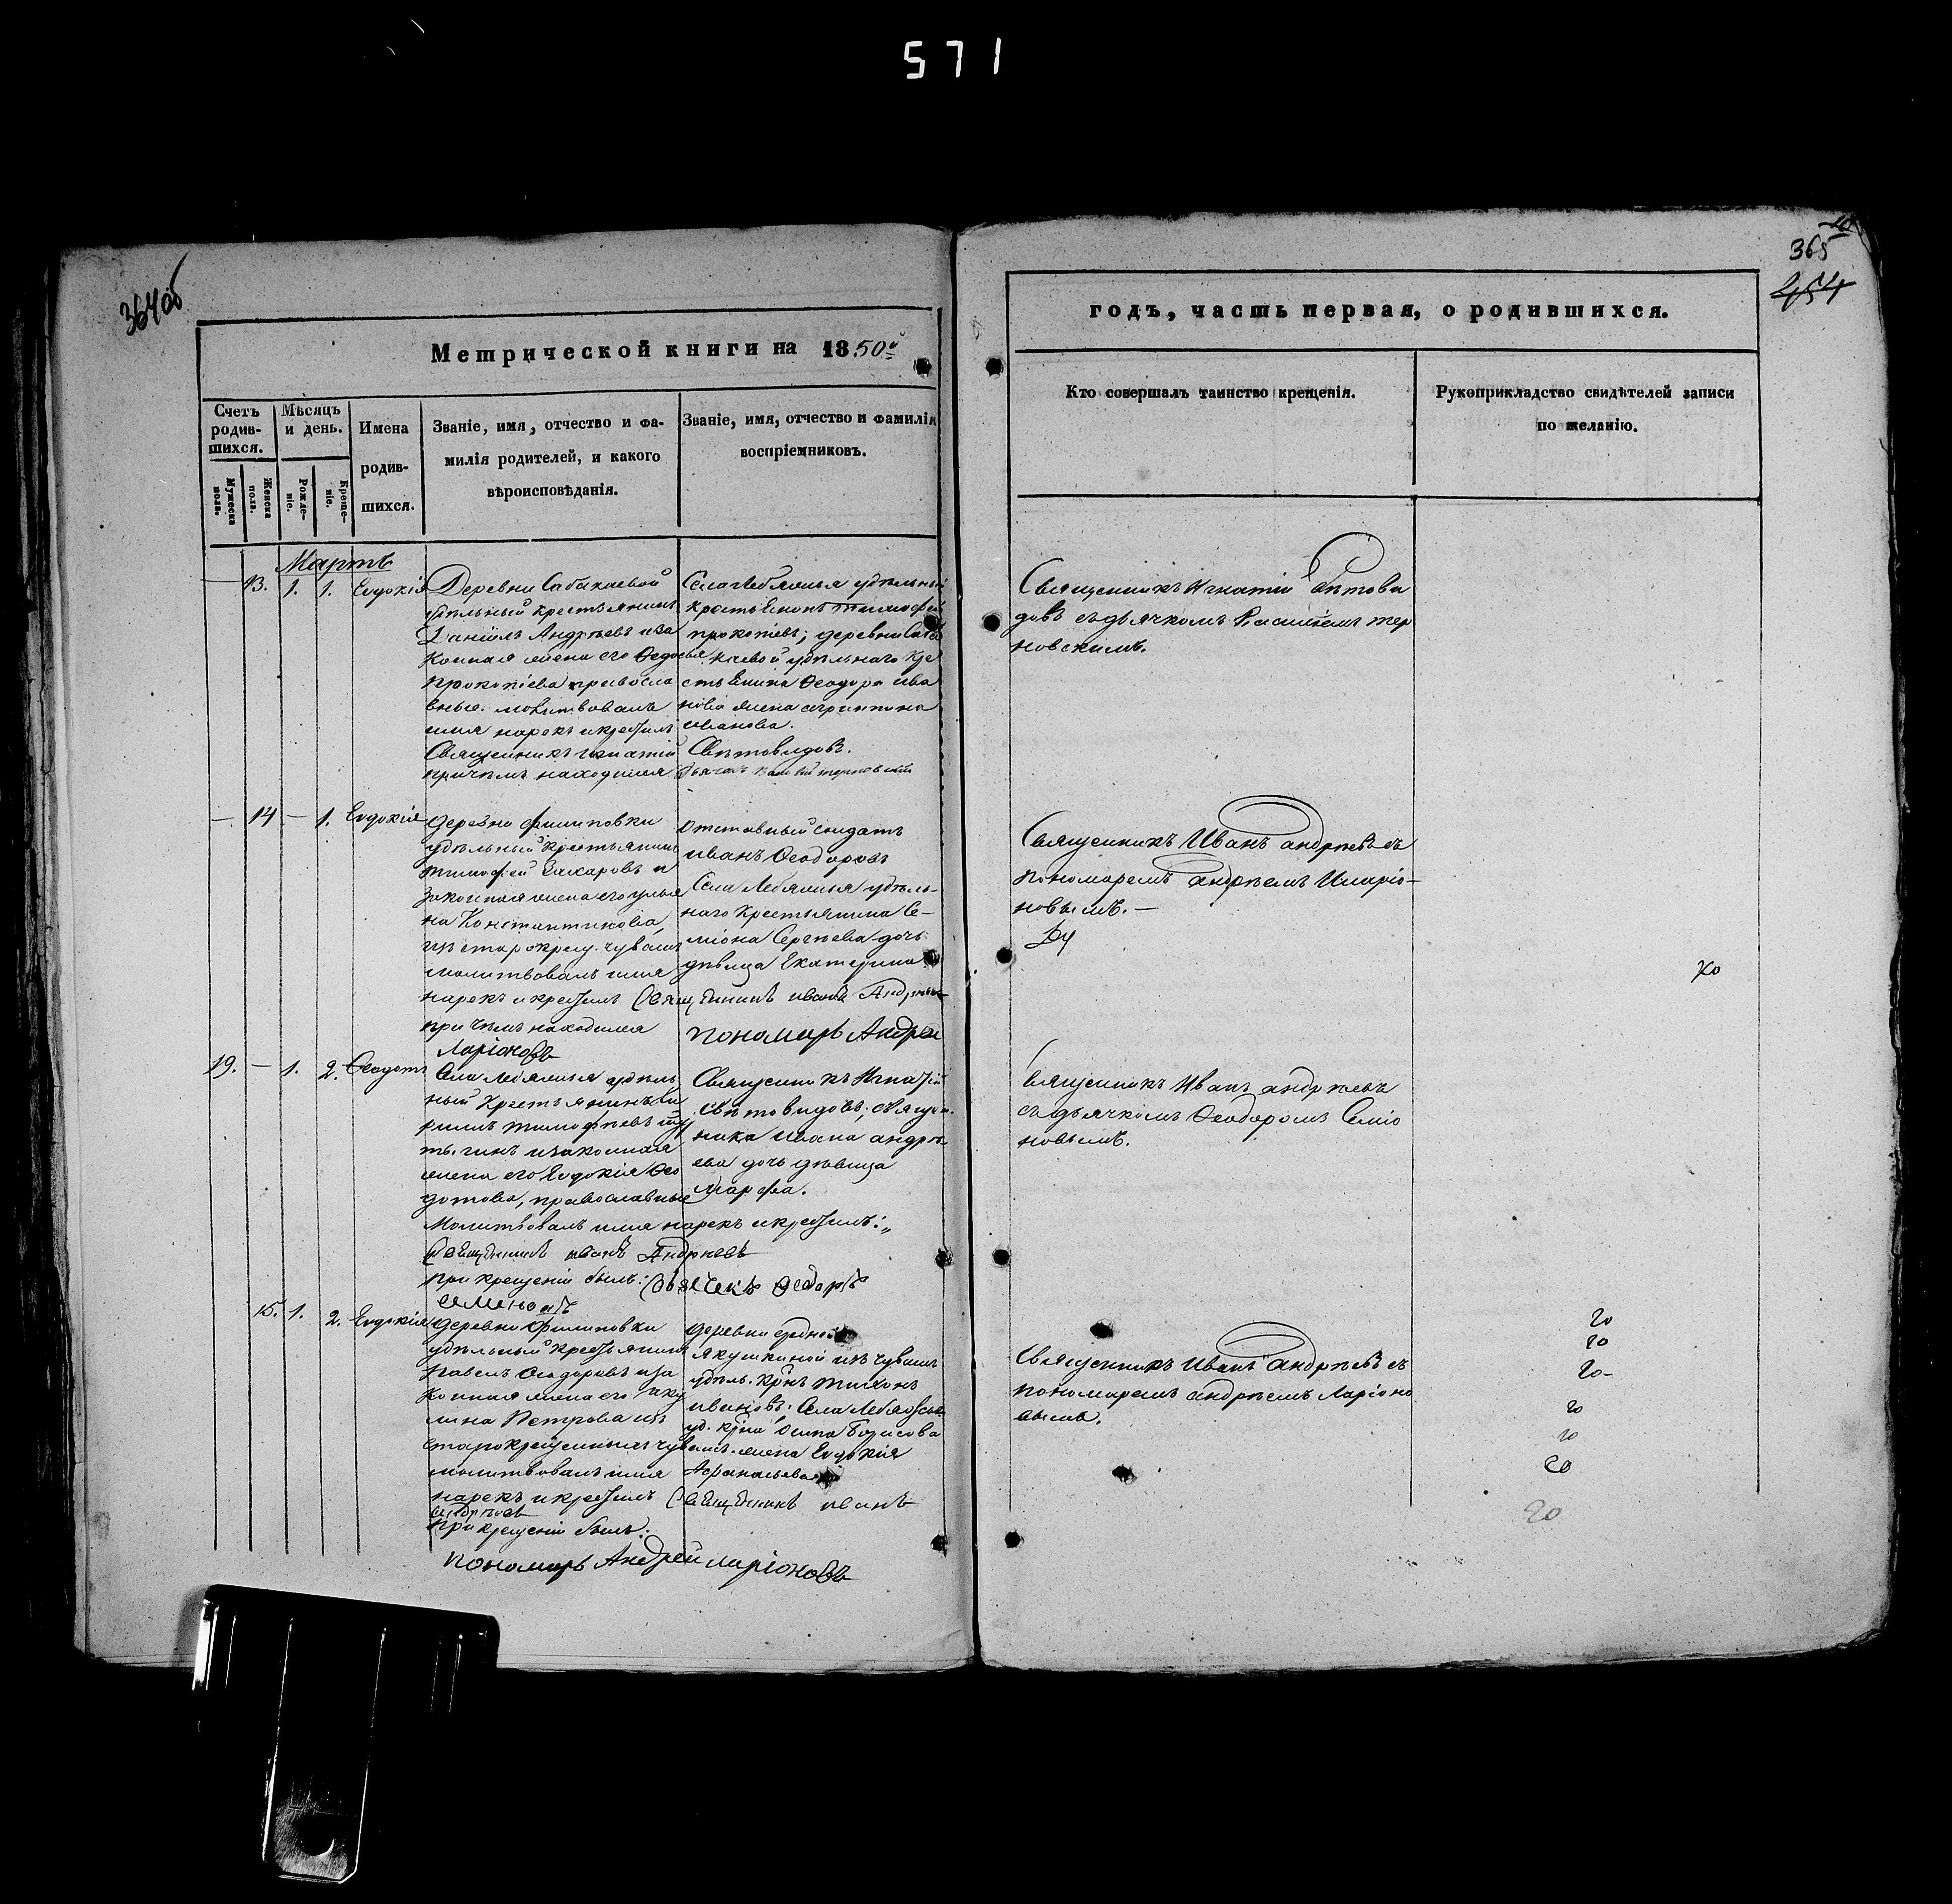 571
364об
Метрической книги на 1850й
Счетъ родив-шихся.
Мужеска пола.
Женска пола.
Мѣсяцъ и день.
Рожде-ніе.
Креще-ніе.
Имена родив-шихся.
Званіе, имя, отчество и фа-
милія родителей, и какого
вѣроисповѣданія.
Званіе, имя, отчество и фамилія
воспріемниковъ.
Мартъ
13. 1. 1. Евдокія
Деревни Сабакаевой
удѣльный крестьянинъ
Даніилъ Андрѣевъ и за
конная жена его Ѳедосья
Прокопіева православ
вные. молитвовалъ
имя нарекъ и крестилъ
Священникъ Игнатій
при чемъ находился
Села Лебяжья удѣльный
крестьянинъ Тимофей
Прокопіевъ; деревни Саба
каевой удѣльнаго кре
стьянина Ѳеодора Ива
нова жена Агрипина
Иванова.
Свѣтовидовъ.
Дьячекъ Василій Терновскій
— 14 — 1. Евдокія
деревни Филиповки
удѣльный крестьянинъ
Тимофей Захаровъ и
законная жена его Улья
на Константинова,
изъ старокрещ. чувашъ
молитвовалъ имя
нарекъ и крестилъ Священникъ Иванъ Андрѣевъ
при чемъ находился
пономарь Андрей
Ларіоновъ
Отставный солдатъ
Иванъ Ѳеодоровъ
Села Лебяжья удѣль-
наго крестьянина Се-
міона Сергѣева дочь
дѣвица Екатерина
19. — 1. 2. Ѳеодотъ
Села Лебяжья удѣль
ный крестьянинъ
Тимофѣевъ
и законная
жена его Евдокія Ѳео
дотова, православные
Молитвовалъ имя нарекъ и крестилъ:
Священникъ Иванъ Андрѣевъ
при крещеніи былъ: Дьячекъ Ѳедоръ
Семіоновъ
Священникъ Игнатій
Свѣтовидовъ; священ-
ника Ивана Андрѣ-
ева дочь дѣвица
Марфа.
15. 1. 2. Евдокія
деревни Филиповки
удѣльный крестьянинъ
Павелъ Ѳеодоровъ и за
конная жена его Аку
лина Петрова изъ
старокрещенныхъ чувашъ.
молитвовалъ имя
нарекъ и крестилъ Священникъ Иванъ
Андрѣевъ
при крещеніи былъ:
пономарь Андрей Ларіоновъ
деревни
Якушкиной изъ чувашъ
удѣль. крнъ Тихонъ
Ивановъ; Села Лебяжья
уд. крна Осипа Борисова
жена Евдокія
Афанасьева
10
365
454
годъ, часть первая, о родившихся.
Кто совершалъ таинство крещенія.
Рукоприкладство свидѣтелей записи
по желанію.
Священникъ Игнатій Свѣтови
довъ съ дьячкомъ Василіемъ Тер
новскимъ.
Священникъ Иванъ Андрѣевъ съ
пономаремъ Андрѣемъ Иларіо-
новымъ. —
Священникъ Иванъ Андрѣевъ
съ дьячкомъ Ѳеодоромъ Семіо
новымъ.
Священникъ Иванъ Андрѣевъ съ
пономаремъ Андрѣемъ Ларіоно
вымъ.
20
20
20-
20
20
20
20